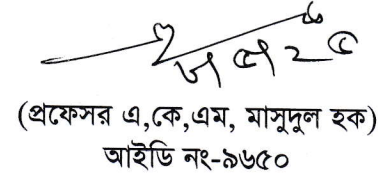 (প্রফেসর এ,কে,এম, মাসুদুল হক)
আইডি নং-৯৬৫০